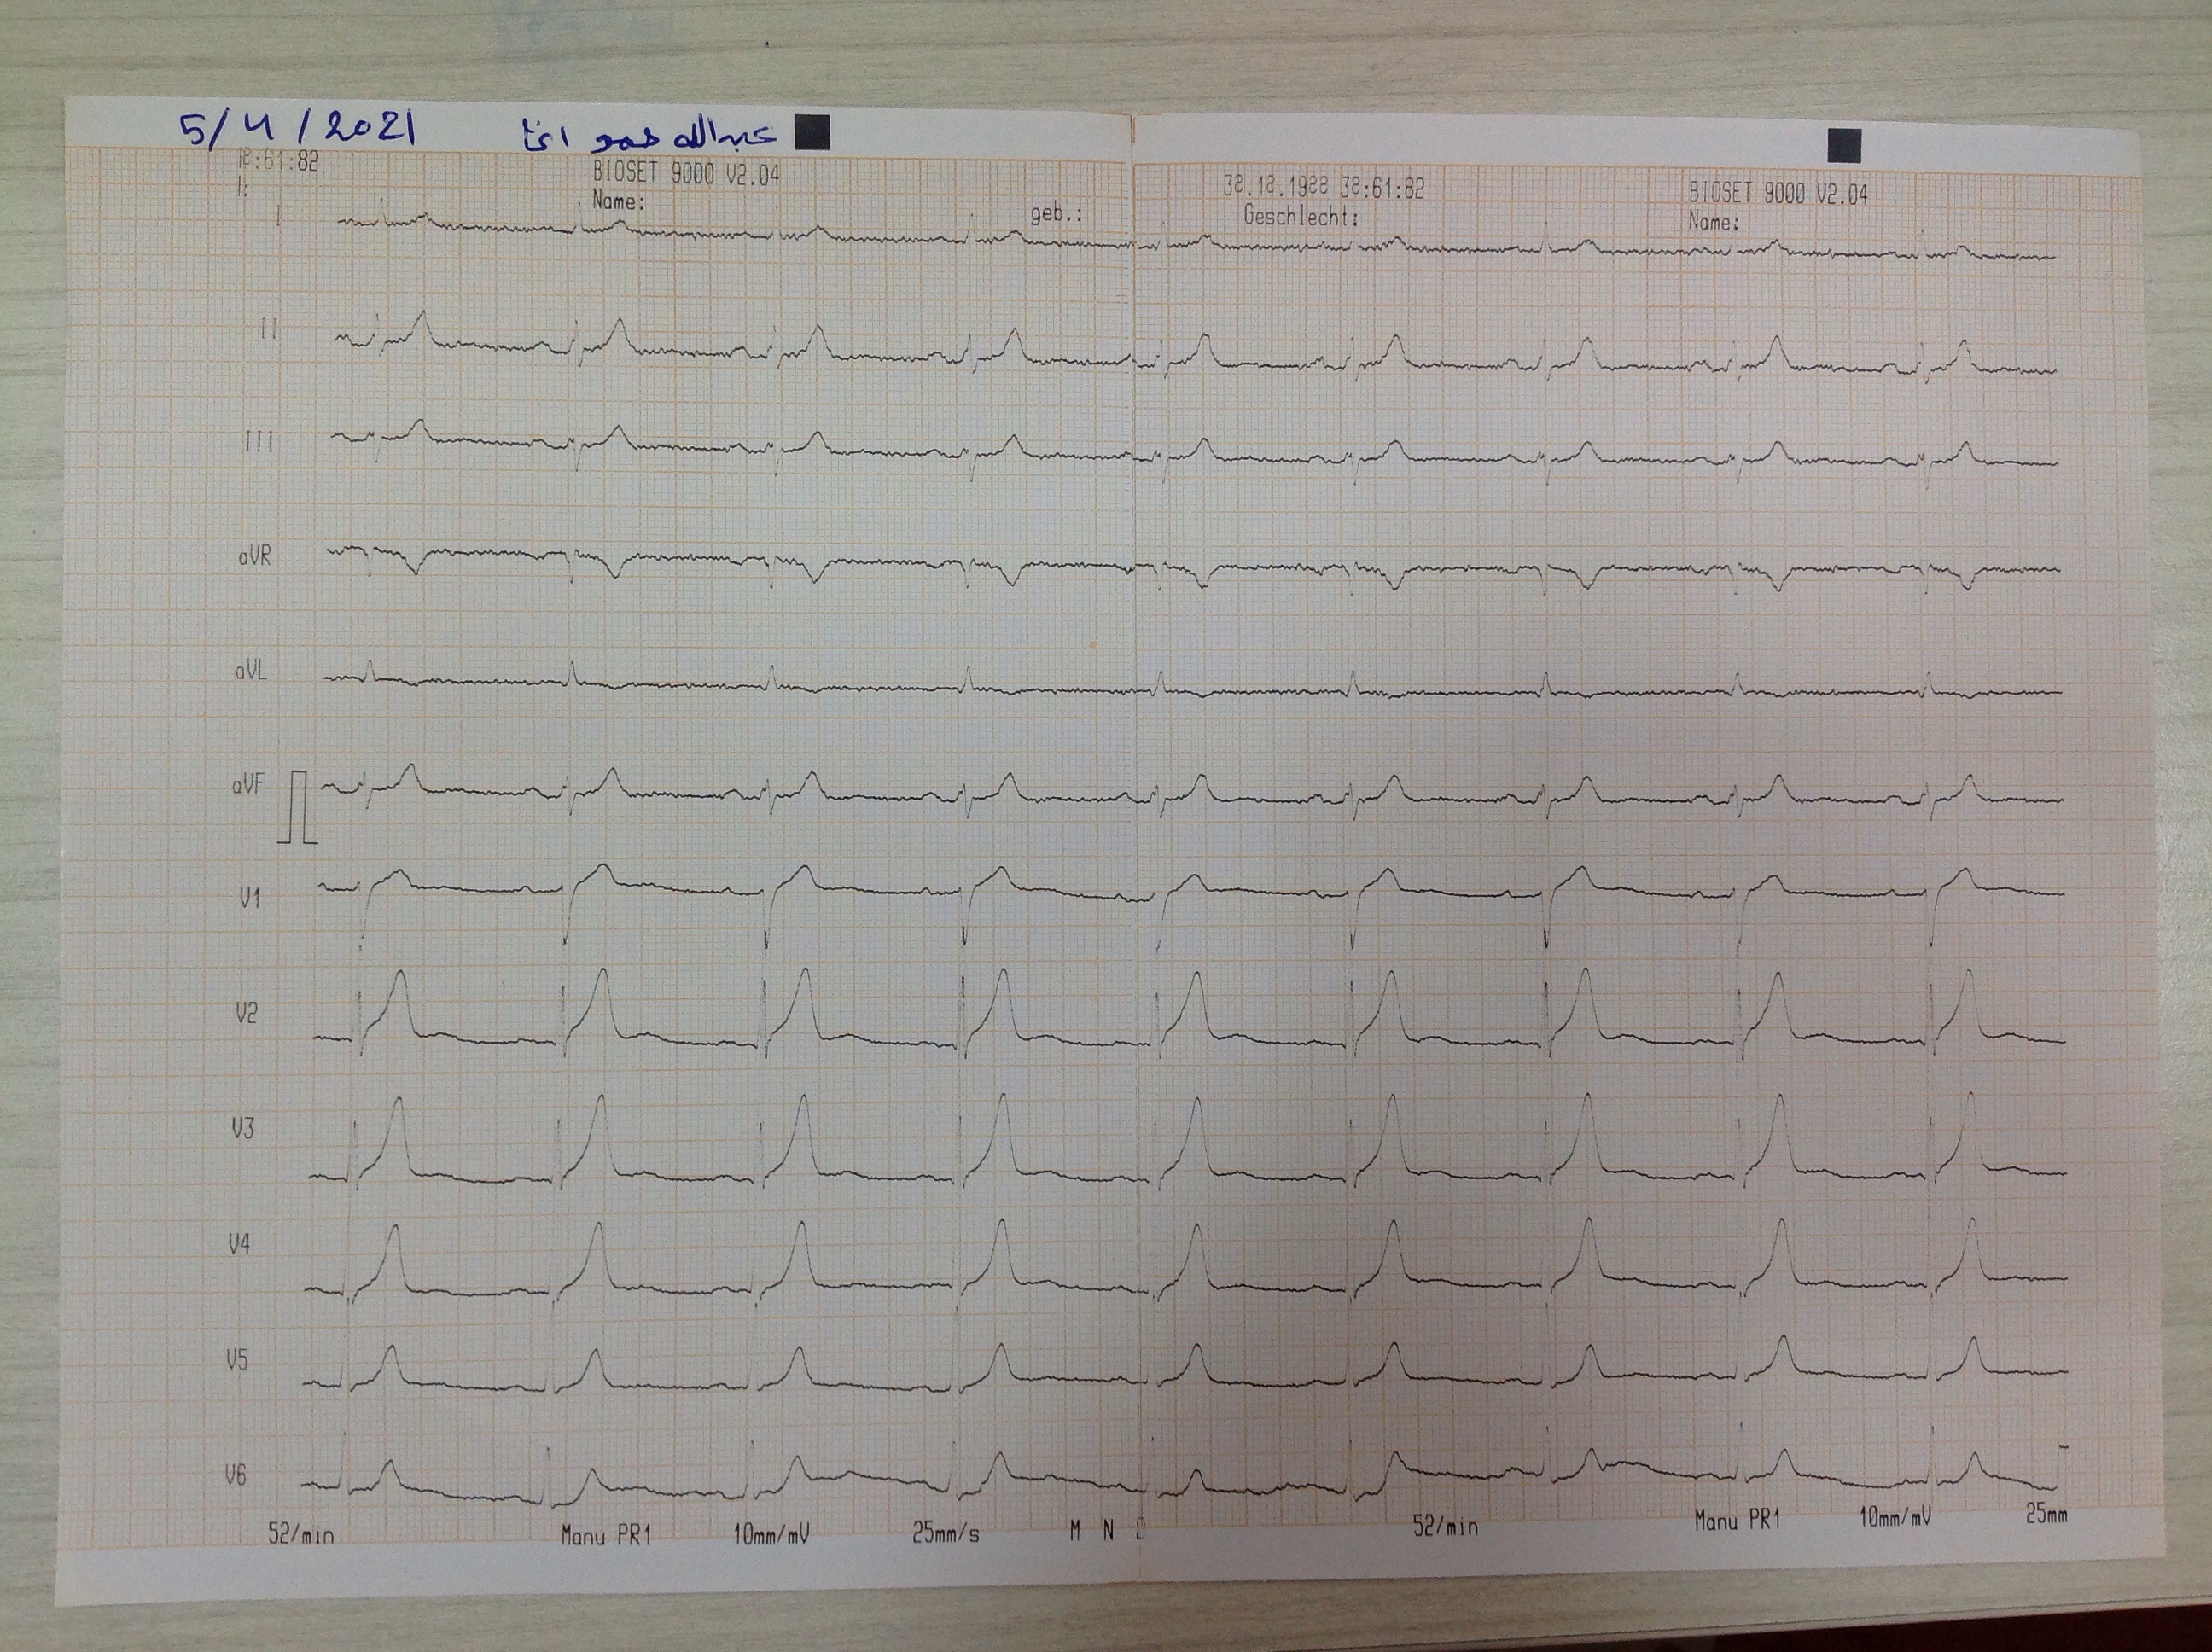 5/4/2021 عبدالله حمو اغا
18:61:82 BIOSET 9000 V2.04 38.18.1988 38:61:82 BIOSET 9000 V2.04
Name: geb.: Geschlecht: Name:
I
II
III
aVR
aVL
aVF
V1
V2
V3
V4
V5
V6
52/min Manu PR1 10mm/mV 25mm/s M N 52/min Manu PR1 10mm/mV 25mm